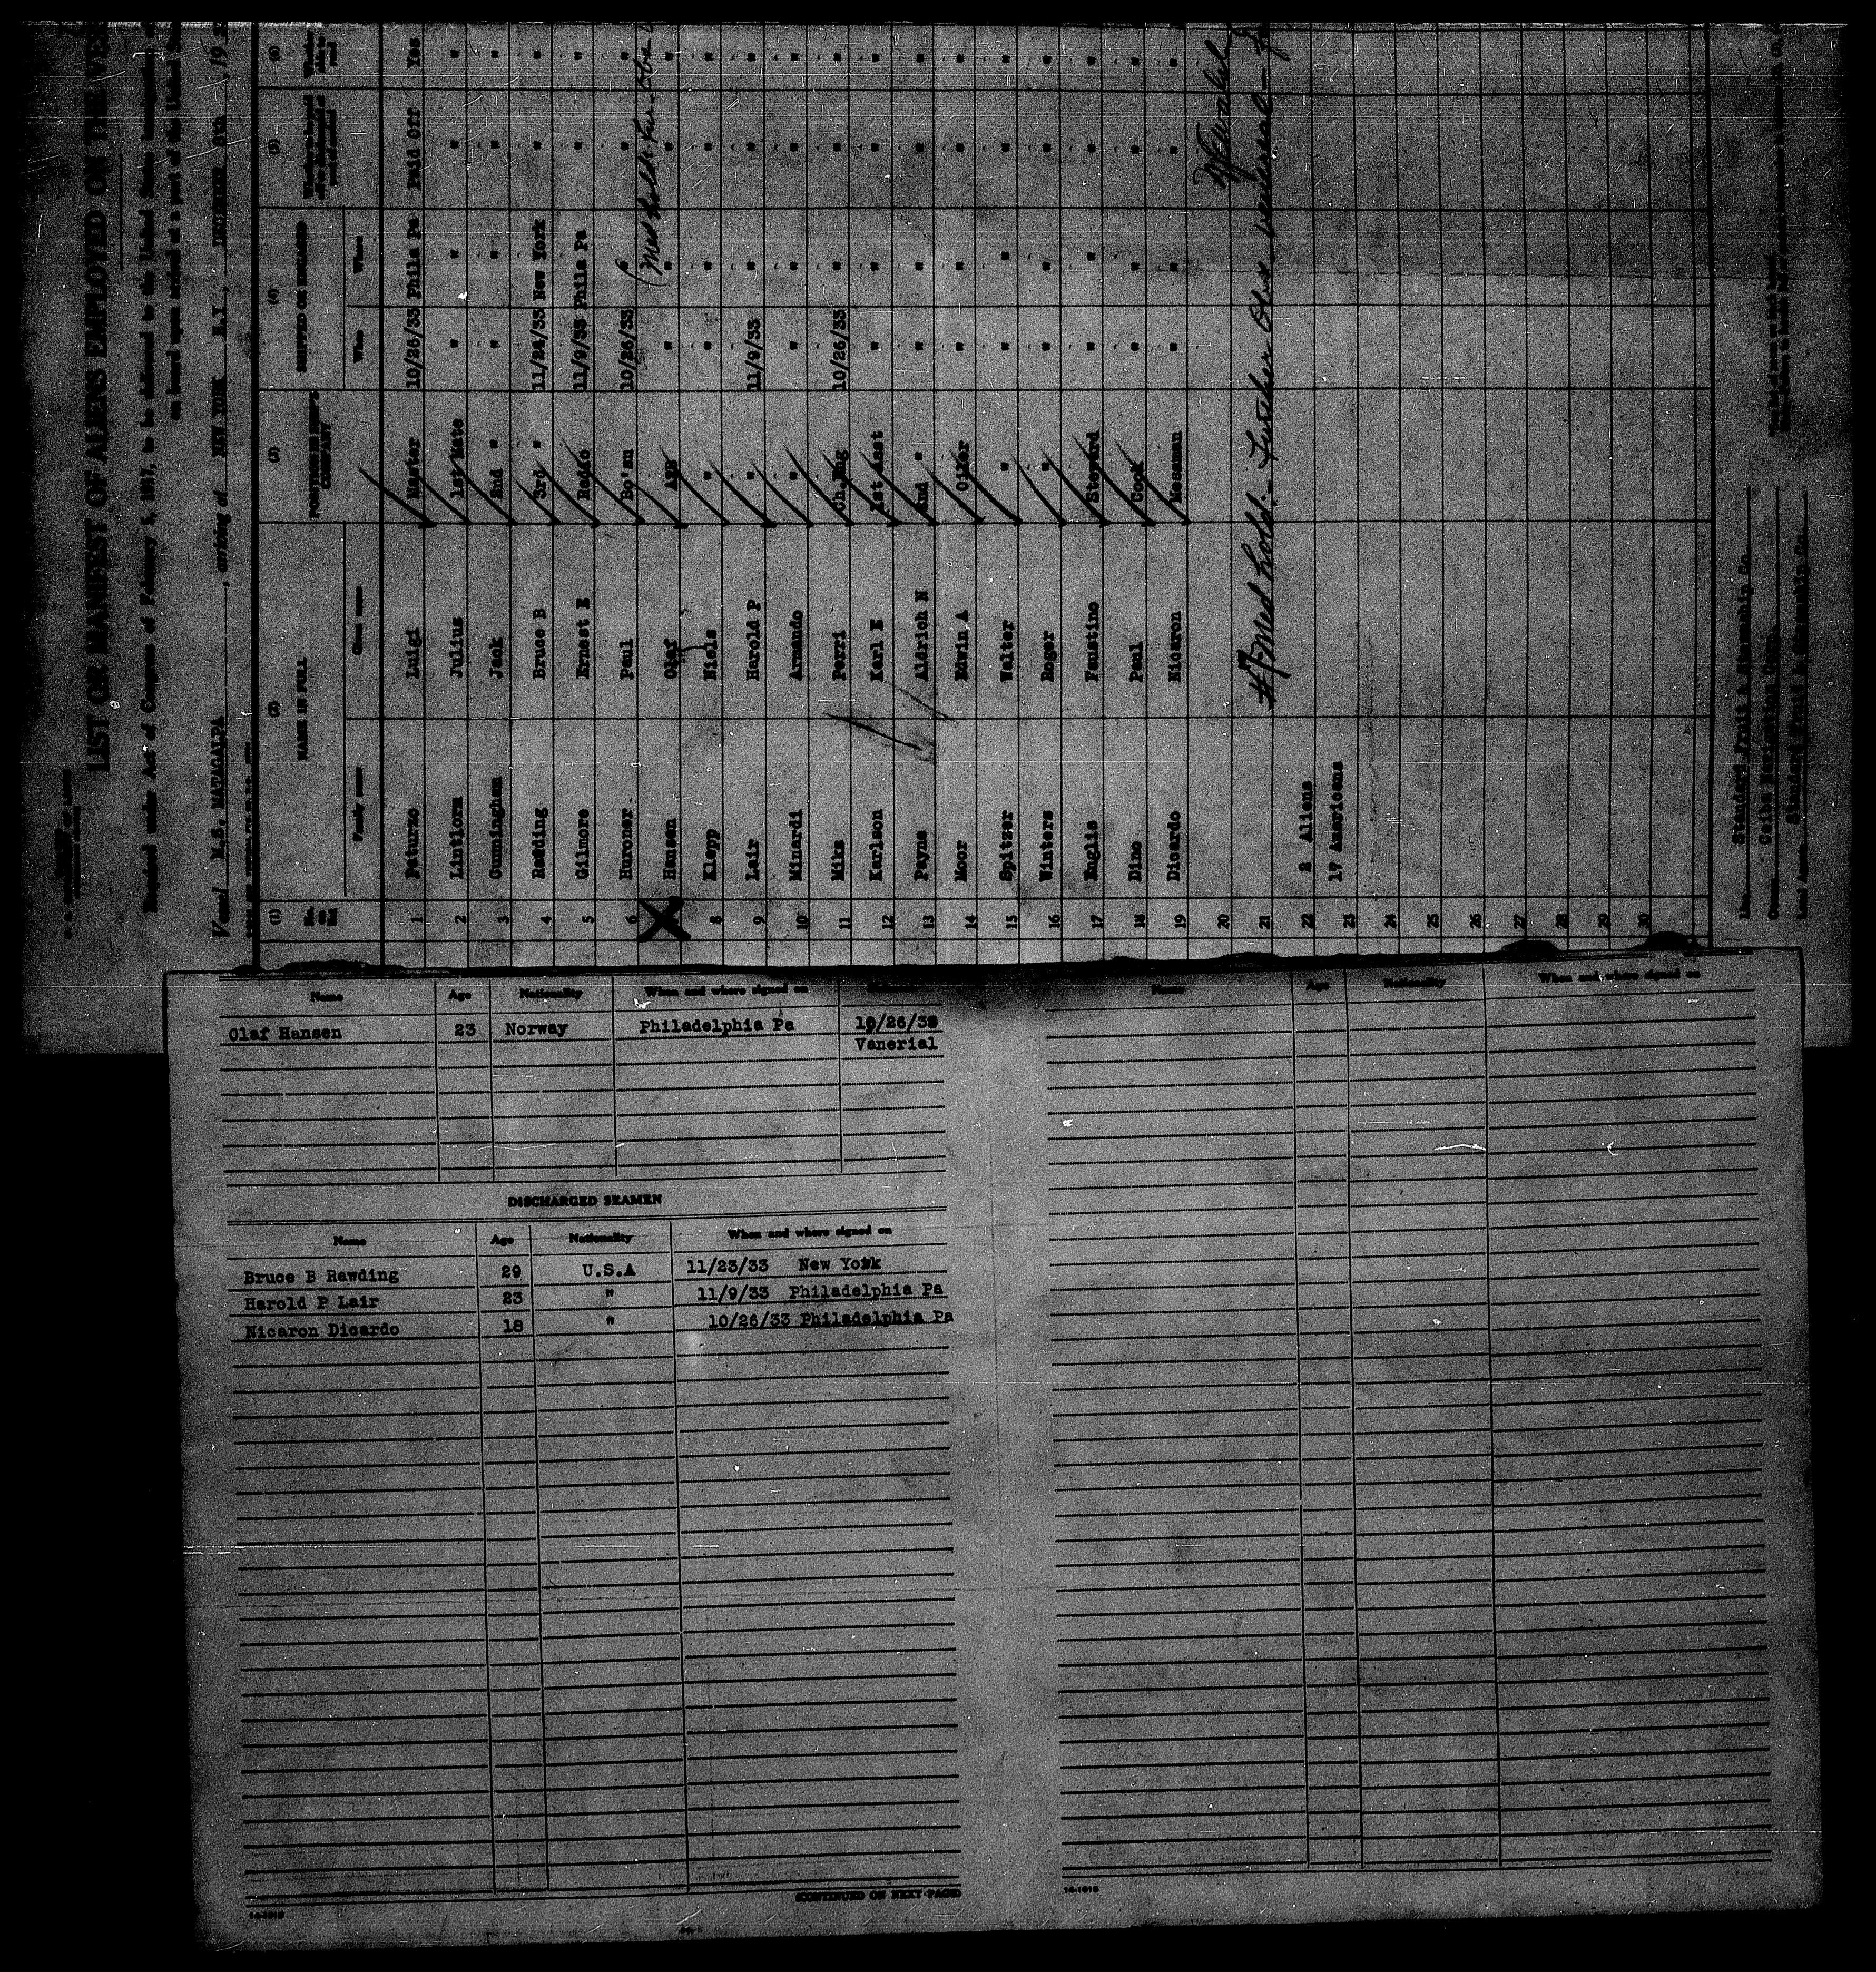 LIST OR MANIFEST OF ALIENS EMPLOYED ON THE VES
Required under Act of Congress of February 5, 1917, to be delivered to the United States
on board upon arrival at a port of the United
Vessel M.S. MATAGALPA, arriving at NEW YORK N.Y., DECEMBER 8th, 19
(1) (2) (3) (4) (5) (6)
No. on list NAME IN FULL POSITION IN SHIP'S COMPANY SHIPPED OR ENGAGED
Family name Given name When Where
1 Paturzo Luigi Master 10/26/33 Phila Pa Paid Off Yes
2 Julius 1st Mate " " " "
3 Cunningham Jack 2nd " " " " "
4 Rawding Bruce B 3rd " 11/24/33 New York " "
5 Gilmore Ernest E Radio 11/9/33 Phila Pa " "
6 Huroner Paul Bo'sn 10/26/33 " " "
Hansen Olaf AB " " " "
8 Klepp Niels " " " " "
9 Lair Harold P " 11/9/33 " " "
10 Minardi Armando " " " " "
11 Miks Perri Ch Eng 10/26/33 " " "
12 Karlson Karl E 1st Asst " " " "
13 Payne Aldrich N 2nd " " " " "
14 Moor Edwin A Oiler " " " "
15 Spitzer Walter " " " " "
16 Winters Roger " " " " "
17 Englis Faustino Steward " " " "
18 Dino Paul Cook " " " "
19 Dicardo Nicaron Mesman " " " "
20
21 #7 Med hold: - Further Obs - venereal -
22 2 Aliens
23 17 Americans
24
25
26
27
28
29
30
Line Standard Fruit & Steamship Co
Owners Ceiba Navigation Corp.
Local Agents Standard Fruit & Steamship Co.
Name Age Nationality When and where signed on
Olaf Hansen 23 Norway Philadelphia Pa 10/26/33
Vanerial
DISCHARGED SEAMEN
Name Age Nationality When and where signed on
Bruce B Rawding 29 U.S.A 11/23/33 New York
Harold P Lair 23 " 11/9/33 Philadelphia Pa
Nicaron Dicardo 18 " 10/26/33 Philadelphia Pa
(CONTINUED ON NEXT PAGE)
Name Age Nationality When and where signed on